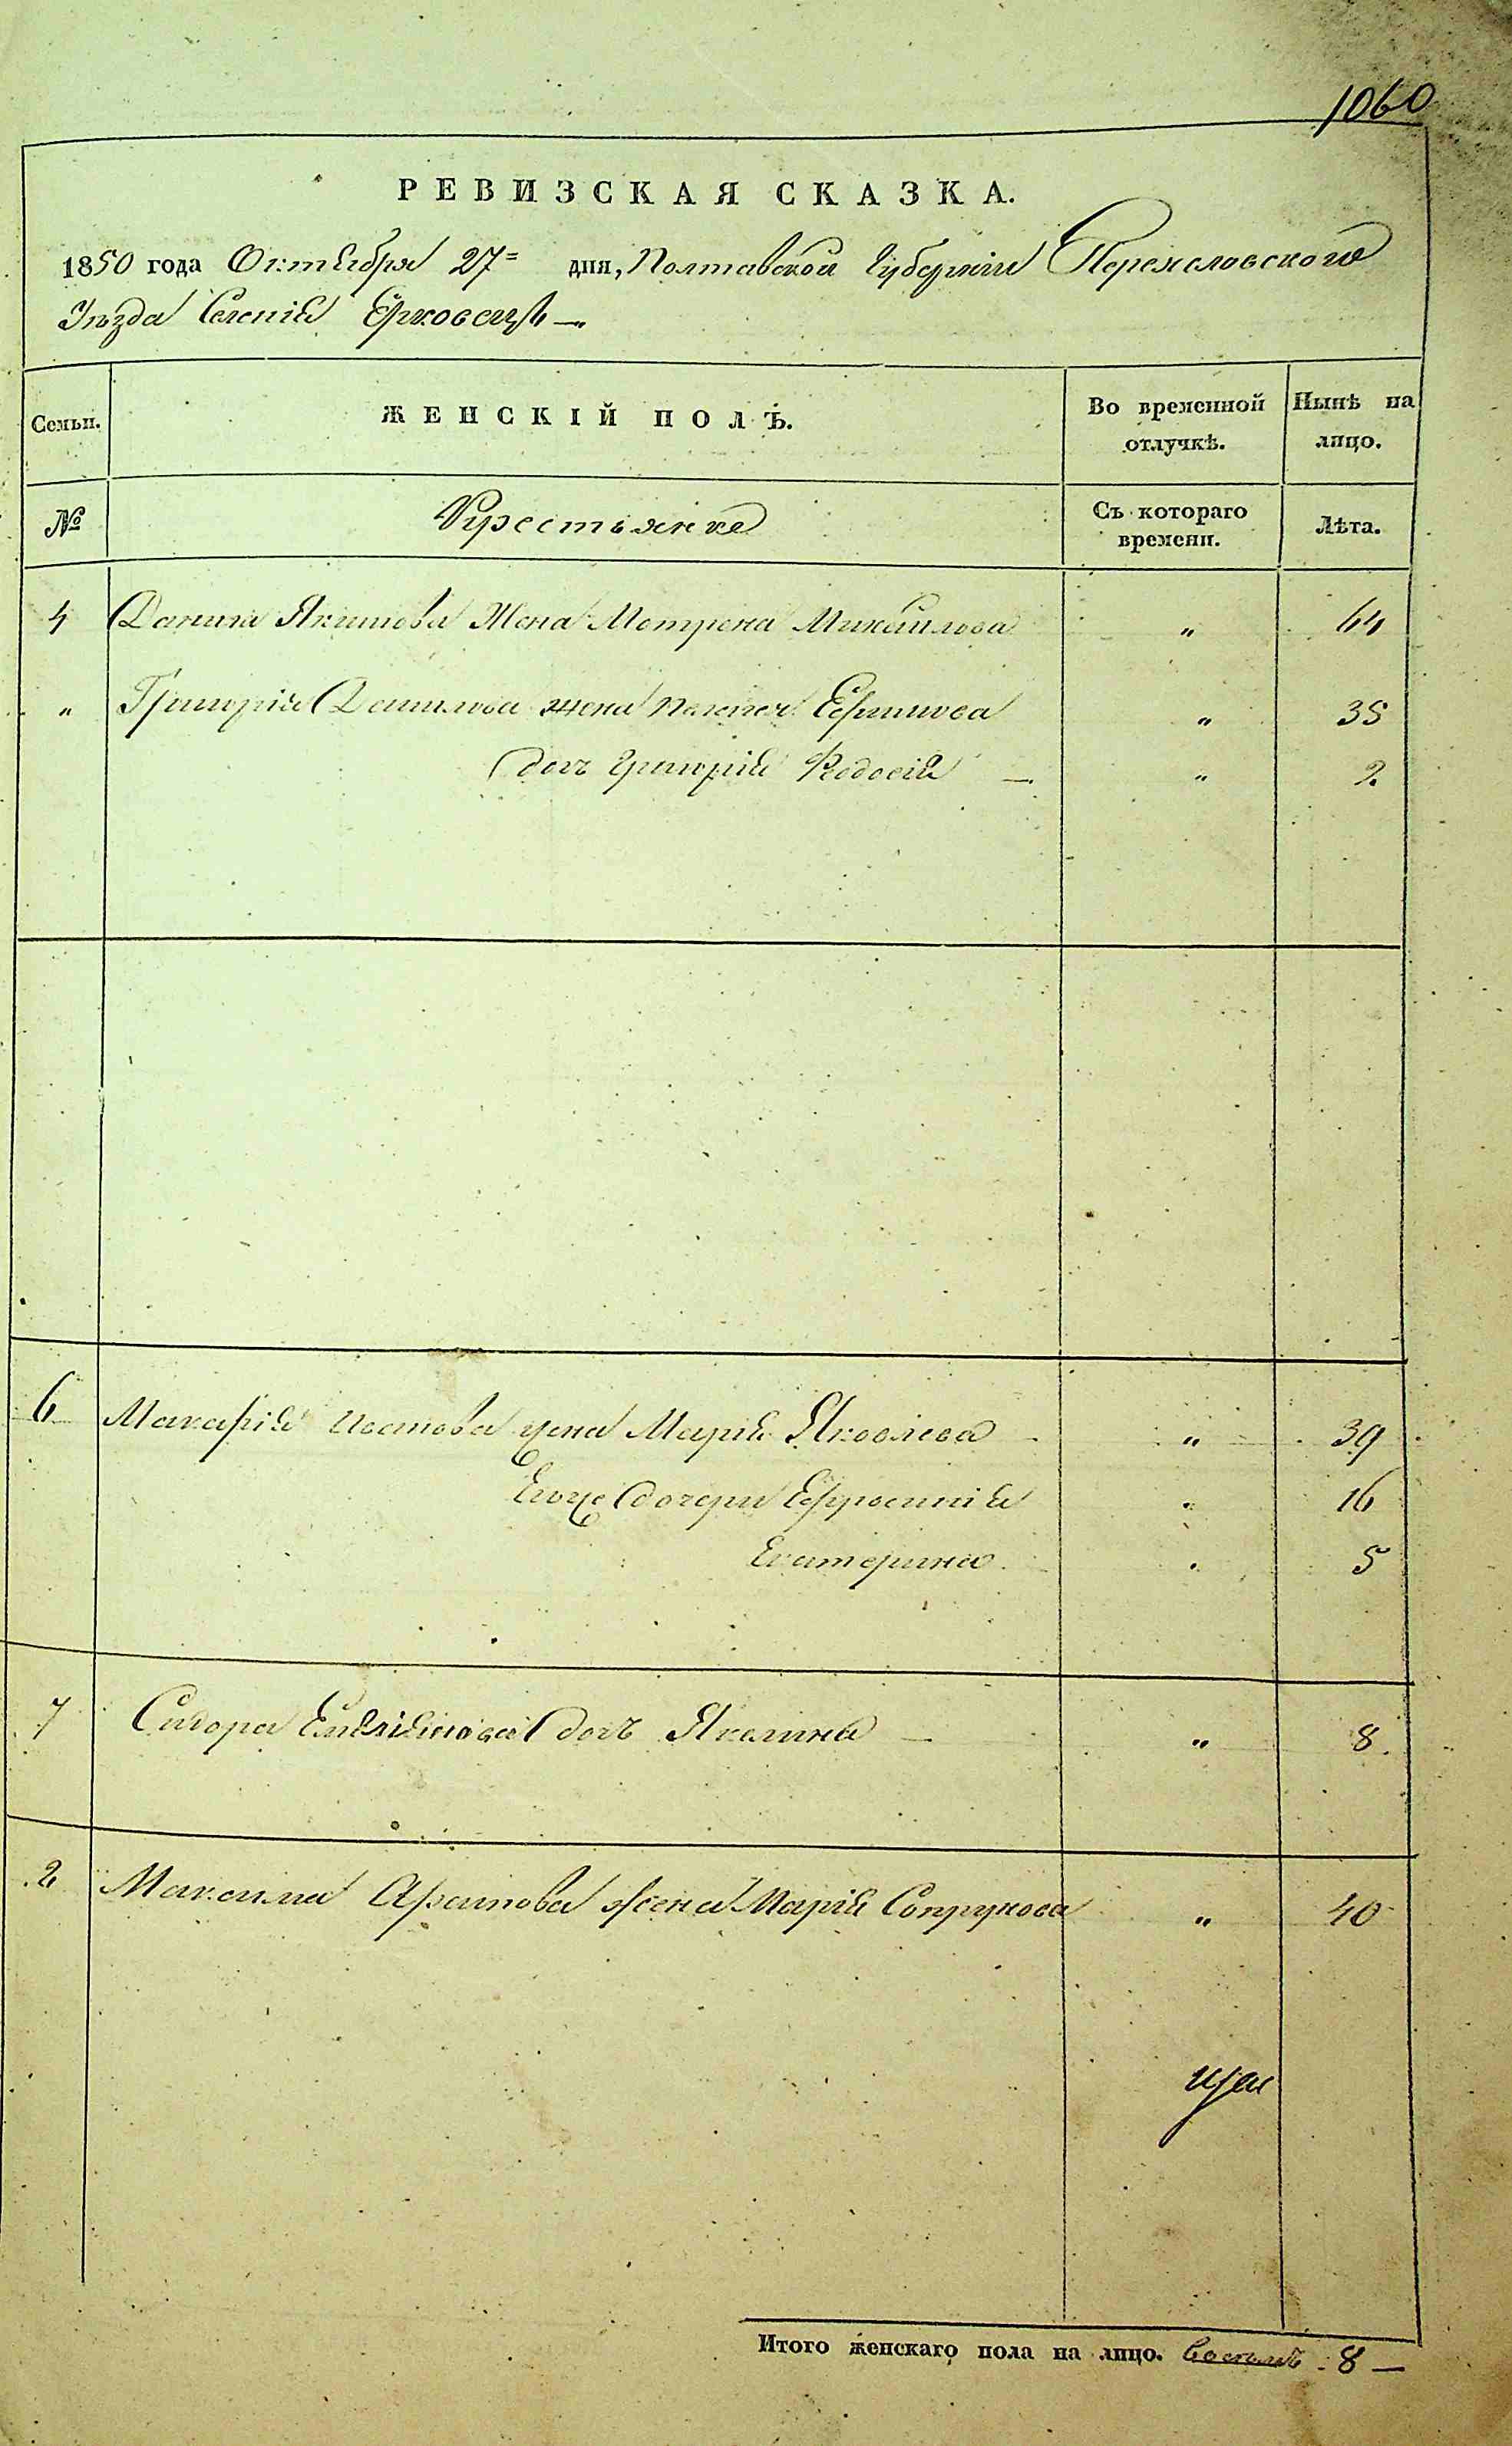 1060
РЕВИЗСКАЯ СКАЗКА.
1850 года Октября 27 дня, Полтавской Губерніи Переясловского
Уѣзда Селенія Ерковецъ —
Семьи. ЖЕНСКІЙ ПОЛЪ. Во временной отлучкѣ. Нынѣ на лицо.
№ Крестьянке Съ котораго времени. Лѣта.
4 Данила Якимова Жена Мотрена Михайлова " 64
" Григорія Данилова жена Пелагея Ефимова " 35
дочь Григорія Феодосія — " 2
6 Макарія жена Марія Яковлева " 39
Егоже дочери Ефросинія " 16
Екатерина " 5
7 Сидора дочь Акелина — " 8
2 Максима жена Марія Сопрунова " 40
Итого женскаго пола на лицо. восемь 8 —